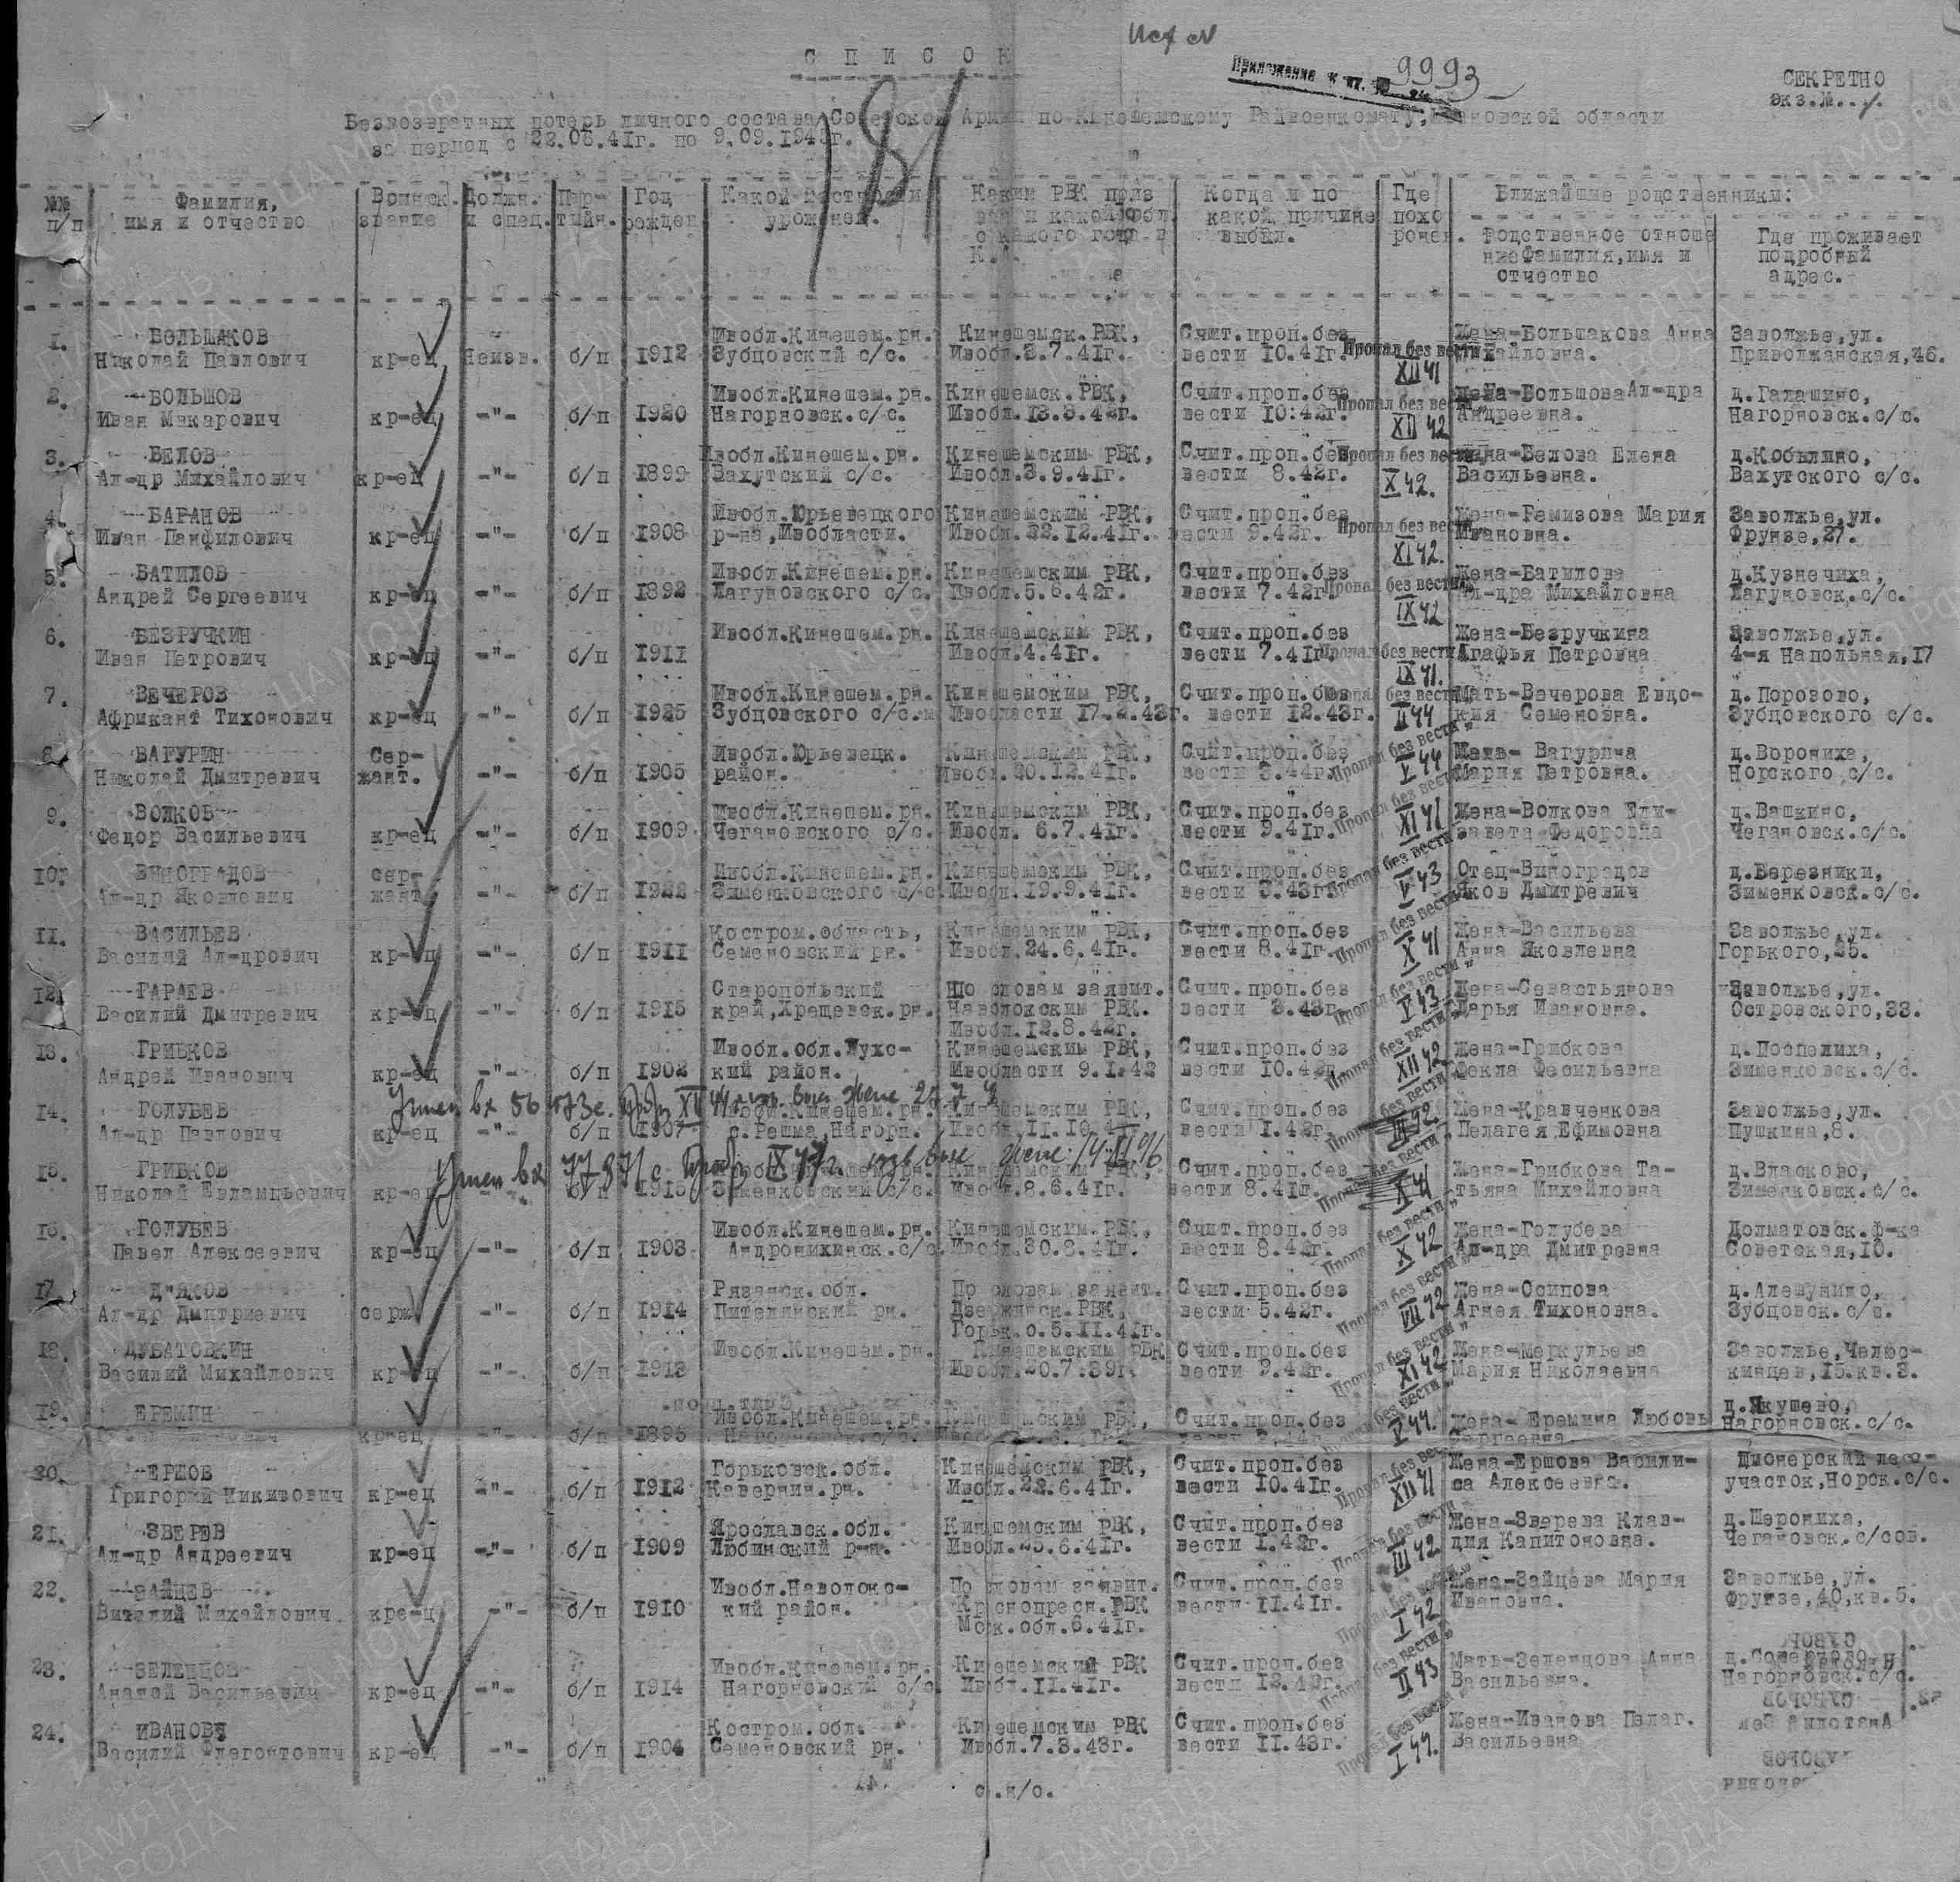 С П И С О К
Приложение к вх. 9993
СЕКРЕТНО
экз.№
Безвозвратных потерь личного состава Советской Армии по Кинешемскому Райвоенкомату, Ивановской области
за период с 22.06.41г. по 9.09.194 г.
181
№№ п/п
Фамилия, имя и отчество
Воинск. звание
Должн. и спец.
Пар-тийн.
Год рожден
Какой местности урожнец.
Каким РВК приз
Когда и по какой причине выбыл.
Где похо ронен.
Ближайшие родственники:
Родственное отноше ниеФамилия,имя и отчество
Где проживает подробный адрес.
1. БОЛЬШАКОВ Николай Павлович кр-ец Неизв. б/п 1912 Ивобл.Кинешем.рн. Зубцовский с/с. Кинешемск.РВК, Ивобл.3.7.41г. Счит.проп.без вести 10.41г. Пропал без вести XII 41 Жена-Большакова Анна Михайловна. Заволжье,ул. Приволжанская,46.
2. БОЛЬШОВ Иван Макарович кр-ец -"- б/п 1920 Ивобл.Кинешем.рн. Нагорновск.с/с. Кинешемск.РВК, Ивобл.13.8.42г. Счит.проп.без вести 10.42г. Пропал без вести XII 42 Жена-Большова Ал-дра Андреевна. д.Галашино, Нагорновск.с/с.
3. БЕЛОВ Ал-др Михайлович кр-ец -"- б/п 1899 Ивобл.Кинешем.рн. Вахутский с/с. Кинешемским РВК, Ивобл.3.9.41г. Счит.проп.без вести 8.42г. Пропал без вести X 42. Жена-Белова Елена Васильевна. д.Кобылино, Вахутского с/с.
4. БАРАНОВ Иван Панфилович кр-ец -"- б/п 1908 Ивобл.Юрьевецкого р-на,Ивобласти. Кинешемским РВК, Ивобл.22.12.41г. Счит.проп.без вести 9.42г. Пропал без вести XI 42. Жена-Ремизова Мария Ивановна. Заволжье,ул. Фрунзе,27.
5. БАТИЛОВ Андрей Сергеевич кр-ец -"- б/п 1892 Ивобл.Кинешем.рн. Лагуновского с/с. Кинешемским РВК, Ивобл.5.6.42г. Счит.проп.без вести 7.42г. Пропал без вести IX 42 Жена-Батилова Ал-дра Михайловна д.Кузнечиха, Лагуновск.с/с.
6. БЕЗРУЧКИН Иван Петрович кр-ец -"- б/п 1911 Ивобл.Кинешем.рн. Кинешемским РВК, Ивобл.4.41г. Счит.проп.без вести 7.41г. Пропал без вести IX 41. Жена-Безручкина Агафья Петровна Заволжье,ул. 4-я Напольная,17
7. ВЕЧЕРОВ Африкант Тихонович кр-ец -"- б/п 1925 Ивобл.Кинешем.рн. Зубцовского с/с. Кинешемским РВК, Ивобласти 17.2.43г. Счит.проп.без вести 12.43г. Пропал без вести II 44 Мать-Вечерова Евдо-кия Семеновна. д.Порозово, Зубцовского с/с.
8. ВАГУРИН Николай Дмитревич Сер-жант. -"- б/п 1905 Ивобл.Юрьевецк. район. Кинешемским РВК, Ивобл.20.12.41г. Счит.проп.без вести 3.44г. Пропал без вести V 44 Жена- Вагурина Мария Петровна. д.Ворониха, Норского с/с.
9. ВОЛКОВ Федор Васильевич кр-ец -"- б/п 1909 Ивобл.Кинешем.рн. Чегановского с/с. Кинешемским РВК, Ивобл. 6.7.41г. Счит.проп.без вести 9.41г. Пропал без вести XI 41 Жена-Волкова Ели-завета Федоровна д.Вашкино, Чегановск.с/с.
10. ВИНОГРАДОВ Ал-др Яковлевич сер-жант -"- б/п 1922 Ивобл.Кинешем.рн. Зименковского с/с Кинешемским РВК, Ивобл.19.9.41г. Счит.проп.без вести 3.43г. Пропал без вести V 43 Отец-Виноградов Яков Дмитревич д.Березники, Зименковск.с/с.
11. ВАСИЛЬЕВ Василий Ал-дрович кр-ец -"- б/п 1911 Костром.область, Семеновский рн. Кинешемским РВК, Ивобл.24.6.41г. Счит.проп.без вести 8.41г. Пропал без вести X 41 Жена-Васильева Анна Яковлевна Заволжье,ул. Горького,25.
12. ГАРАЕВ Василий Дмитревич кр-ец -"- б/п 1915 Старопольский край,Хрещевск.рн. По словам заявит. Наволокским РВК. Ивобл.12.8.42г. Счит.проп.без вести 3.43г. Пропал без вести V 43 Жена-Севастьянова Дарья Ивановна. Заволжье,ул. Островского,33.
13. ГРИБКОВ Андрей Иванович кр-ец -"- б/п 1902 Ивобл.обл.Лухс-кий район. Кинешемским РВК, Ивобласти 9.1.42 Счит.проп.без вести 10.42г. Пропал без вести XII 42 Жена-Грибкова Фекла Фесильевна д.Поспелиха, Зименковск.с/с.
14. ГОЛУБЕВ Ал-др Павлович кр-ец -"- б/п 1907 с.Решма,Нагорн. Кинешемским РВК, Счит.проп.без вести 1.42г. Пропал без вести III 42 Жена-Кравченкова Пелагея Ефимовна Заволжье,ул. Пушкина,8.
15. ГРИБКОВ Николай Евлампьевич кр-ец б/п 1915 Зименковский с/с. Кинешемским РВК, Ивобл.8.6.41г. Счит.проп.без вести 8.41г. X 41 Жена-Грибкова Та-тьяна Михайловна д.Власково, Зименковск.с/с.
16. ГОЛУБЕВ Павел Алексеевич кр-ец -"- б/п 1903 Ивобл.Кинешем.рн. Андронихинск.с/с. Кинешемским.РВК, Ивобл.30.8.41г. Счит.проп.без вести 8.42г. Пропал без вести X 42 Жена-Голубева Ал-дра Дмитревна Долматовск.ф-ка Советская,10.
17. Ал-др Дмитриевич серж -"- б/п 1914 Рязанск.обл. Пителинский рн. По словам заявит. Дзержинск.РВК, Горьк.о.5.11.41г. Счит.проп.без вести 5.42г. Пропал без вести VII 42 Жена-Осипова Агнея Тихоновна. д.Алешунино, Зубцовск.с/с.
18. ДУБАТОВКИН Василий Михайлович кр-ец -"- б/п 1913 Ивобл.Кинешем.рн. Кинешемским РВК Ивобл.20.7.39г. Счит.проп.без вести 9.42г. Пропал без вести XI 42 Жена-Меркульева Мария Николаевна Заволжье,Челюс-кинцев,15.кв.3.
19. ЕРЕМИН кр-ец -"- б/п 1895 Ивобл.Кинешем.рн. Счит.проп.без V 44. Жена- Еремина Любовь Сергеевна д.Якушево, Нагорновск.с/с.
20. ЕРШОВ Григорий Никитович кр-ец -"- б/п 1912 Горьковск.обл. Кавернин.рн. Кинешемским РВК, Ивобл.22.6.41г. Счит.проп.без вести 10.41г. Пропал без вести XII 41 Жена-Ершова Васили-са Алексеевна. Пионерский лесо-участок,Норск.с/с.
21. ЗВЕРЕВ Ал-др Андреевич кр-ец -"- б/п 1909 Ярославск.обл. Любинский р-н. Кинешемским РВК, Ивобл.25.6.41г. Счит.проп.без вести 1.42г. Пропал без вести III 42 Жена-Зверева Клав-дия Капитоновна. д.Шерониха, Чегановск.с/сов.
22. ЗАЙЦЕВ Виталий Михайлович кре-ц -"- б/п 1910 Ивобл.Наволокс-кий район. По словам заявит. Краснопресн.РВК Мск.обл.6.41г. Счит.проп.без вести 11.41г. I 42 Жена-Зайцева Мария Ивановна. Заволжье,ул. Фрунзе,40,кв.5.
23. ЗЕЛЕНЦОВ Васильевич кр-ец -"- б/п 1914 Ивобл.Кинешем.рн. Нагорновский с/с. Кинешемский РВК Ивобл.11.41г. Счит.проп.без вести 12.42г. Пропал без вести II 43 Мать-Зеленцова Анна Васильевна. Нагорновск.с/с.
24. ИВАНОВ Василий Флегонтович кр-ец -"- б/п 1904 Костром.обл. Семеновский рн. Кинешемским РВК Ивобл.7.3.43г. Счит.проп.без вести 11.43г. Пропал без вести I 44. Жена-Иванова Пелаг. Васильевна
с.н/о.
ПАМЯТЬ НАРОДА
ЦАМО РФ